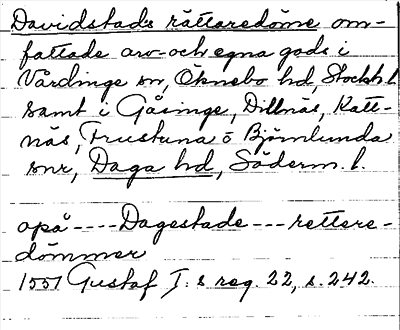 Davidstads rättaredöme om-
fattade arv- och egna gods i
Vårdinge sn, Öknebo hd, Stockh. l.
samt i Gåsinge, Dillnäs, Katt-
näs, Frustuna o Björnlunda
snr, Daga hd, Söderm. l.
opå ---- Dagestade --- rettere-
dömmer
1551 Gustaf I:s reg. 22, s. 242.